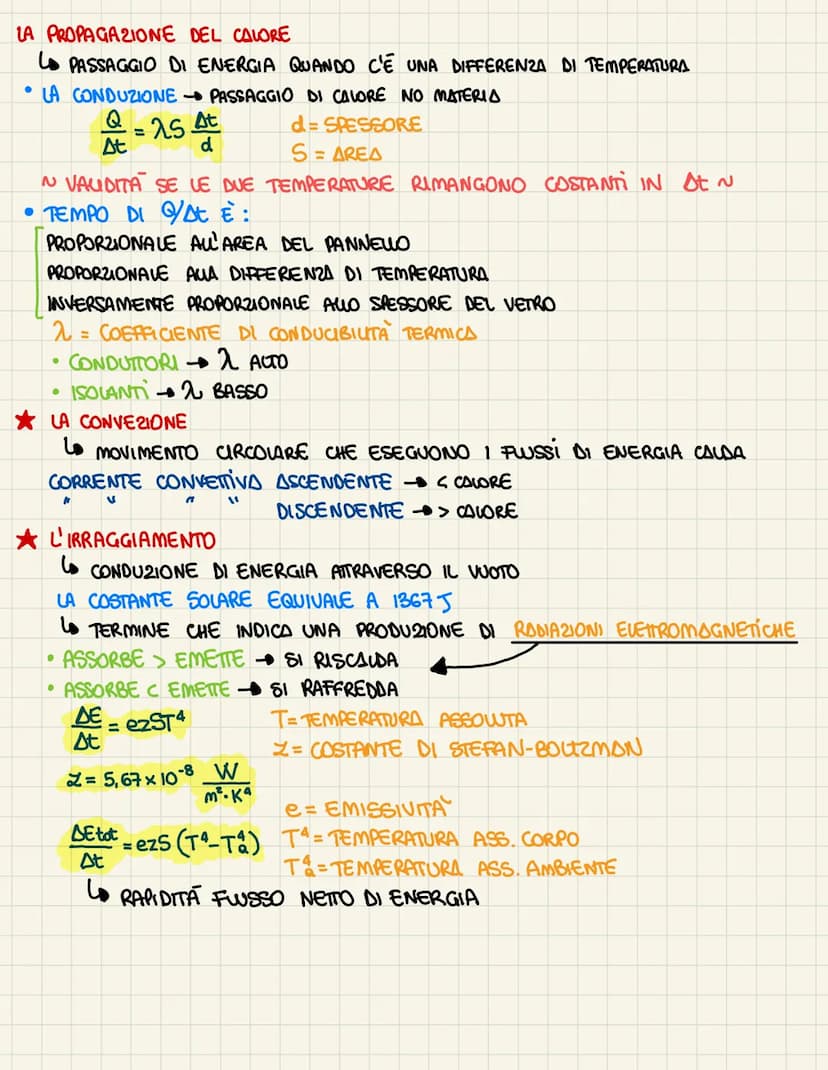 LA PROPAGAZIONE DEL CALORE
↳ PASSAGGIO DI ENERGIA QUANDO C'È UNA DIFFERENZA DI TEMPERATURA
• LA CONDUZIONE → PASSAGGIO DI CALORE NO MATERIA
Q/Δt = λS Δt/d d = SPESSORE
S = AREA
~ VALIDITÀ SE LE DUE TEMPERATURE RIMANGONO COSTANTI IN Δt ~
• TEMPO DI Q/Δt È:
PROPORZIONALE ALL'AREA DEL PANNELLO
PROPORZIONALE ALLA DIFFERENZA DI TEMPERATURA
INVERSAMENTE PROPORZIONALE ALLO SPESSORE DEL VETRO
λ = COEFFICIENTE DI CONDUCIBILITÀ TERMICA
• CONDUTTORI → λ ALTO
• ISOLANTI → λ BASSO
★ LA CONVEZIONE
↳ MOVIMENTO CIRCOLARE CHE ESEGUONO I FLUSSI DI ENERGIA CALDA
CORRENTE CONVETTIVA ASCENDENTE → < CALORE
" " " " DISCENDENTE → > CALORE
★ L'IRRAGGIAMENTO
↳ CONDUZIONE DI ENERGIA ATTRAVERSO IL VUOTO
LA COSTANTE SOLARE EQUIVALE A 1367 J
↳ TERMINE CHE INDICA UNA PRODUZIONE DI RADIAZIONI ELETTROMAGNETICHE
• ASSORBE > EMETTE → SI RISCALDA
• ASSORBE < EMETTE → SI RAFFREDDA
ΔE/Δt = ezST⁴ T = TEMPERATURA ASSOLUTA
z = COSTANTE DI STEFAN-BOLTZMAN
z = 5,67 × 10⁻⁸ W/m²·K⁴
e = EMISSIVITÀ
ΔE tot/Δt = ezS (T⁴ - Tₐ⁴) T⁴ = TEMPERATURA ASS. CORPO
Tₐ⁴ = TEMPERATURA ASS. AMBIENTE
↳ RAPIDITÀ FLUSSO NETTO DI ENERGIA